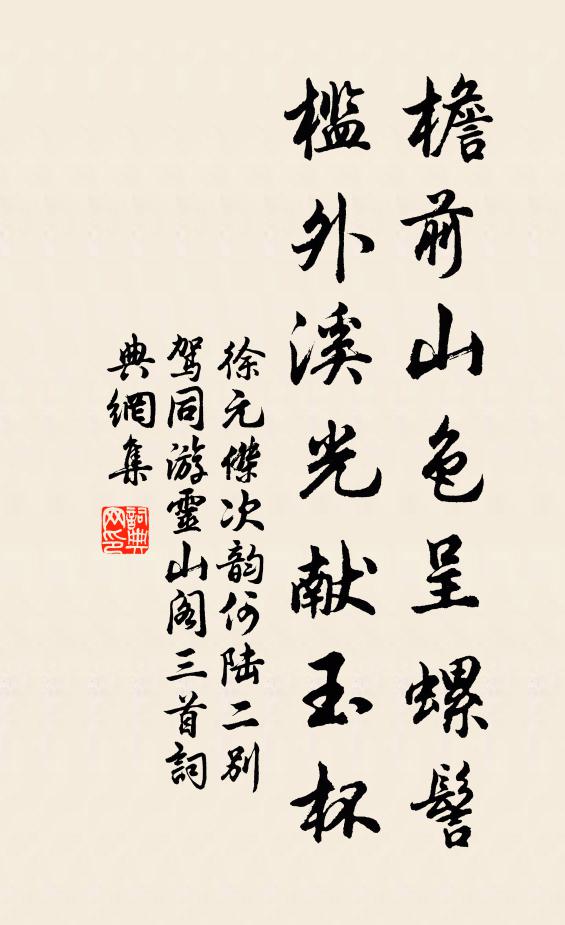 檐前山色呈螺髻
槛外溪光献玉杯
徐元傑次韵何陆二别
驾同游靈山阁三首詞
典網集
詞典网印